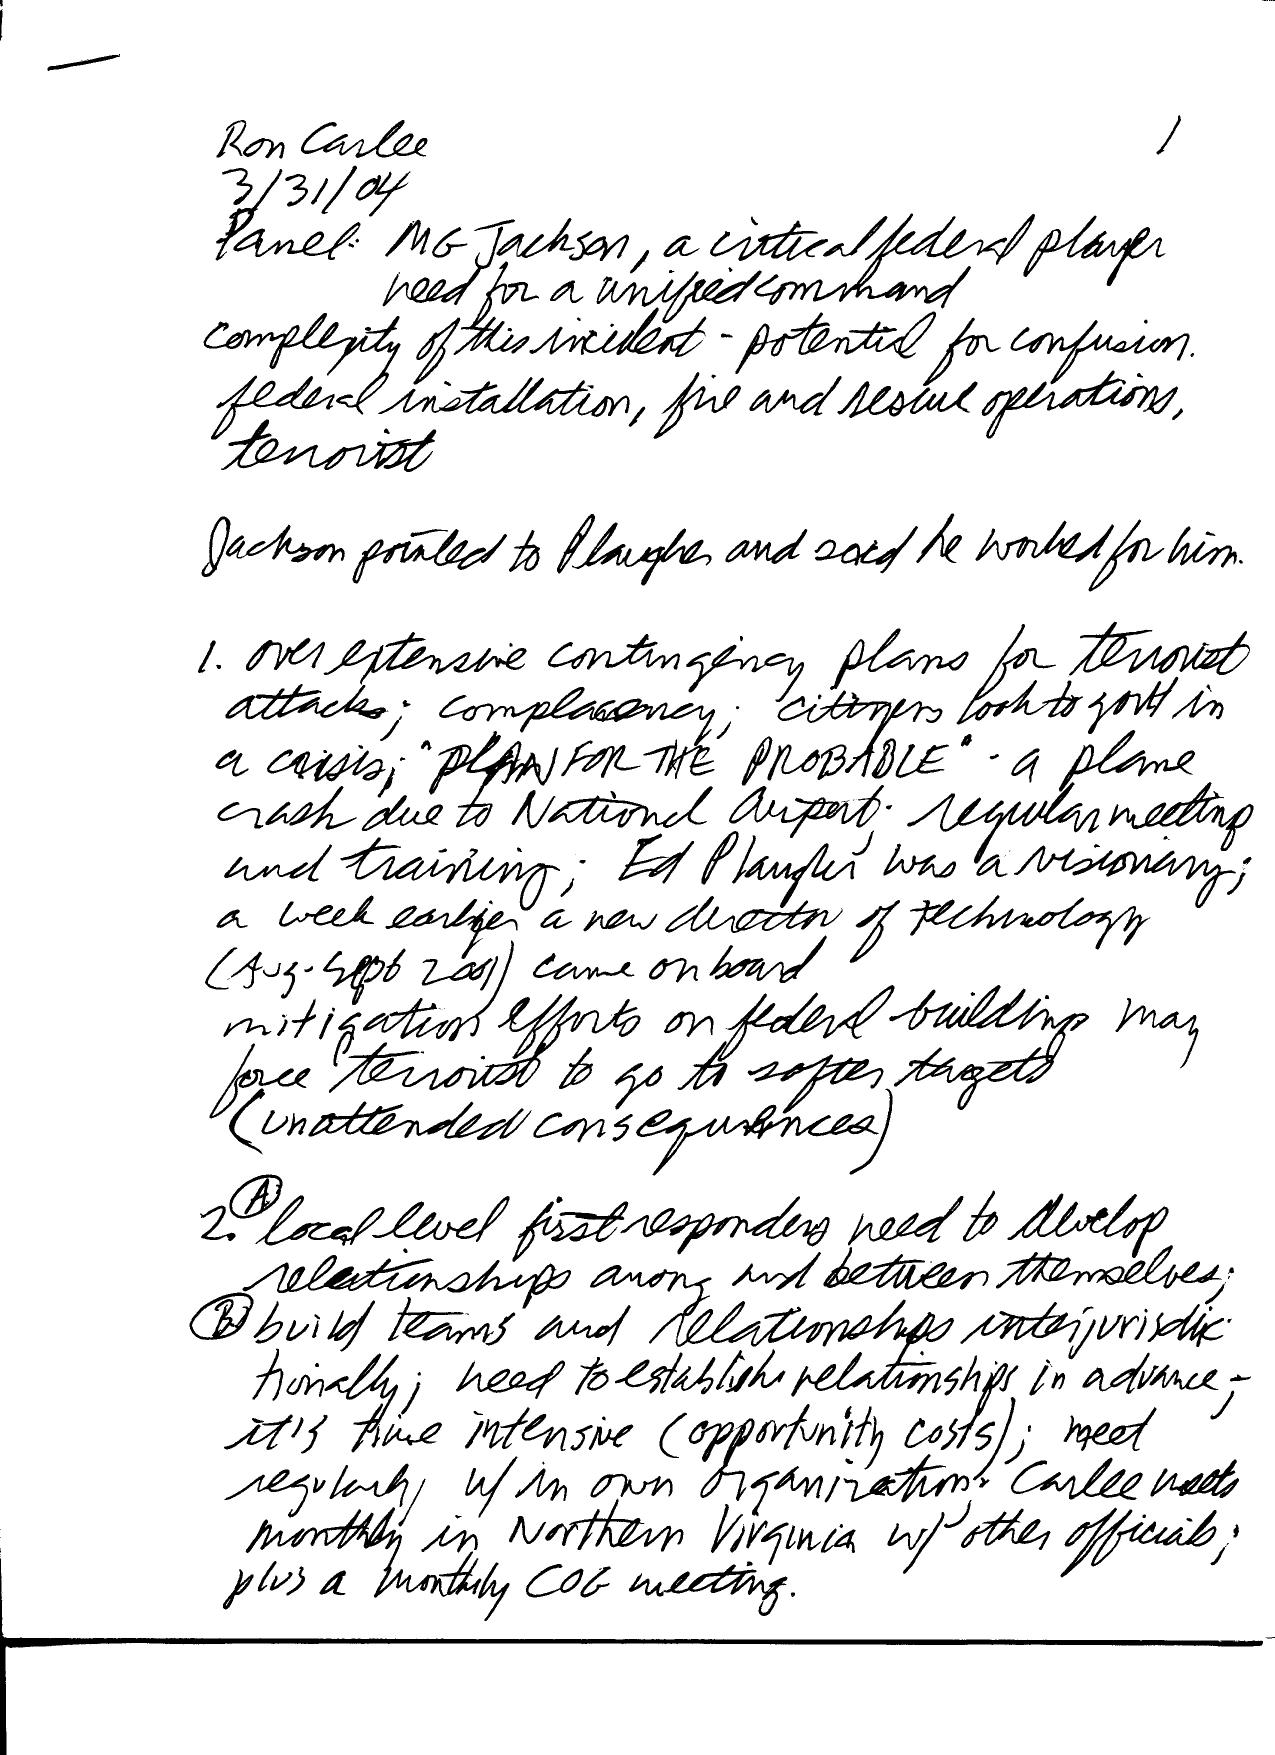 Ron Carlee 1
3/31/04
Panel: MG Jackson, a critical federal player
need for a unified command
complexity of this incident - potential for confusion.
federal installation, fire and rescue operations,
terrorist
Jackson pointed to Plaugher and said he worked for him.
1. over extensive contingency plans for terrorist
attacks; complacency; citizens look to govt in
a crisis; "PLAN FOR THE PROBABLE" - a plane
crash due to National Airport; regular meeting
and training; Ed Plaugher was a visionary;
a week earlier a new director of technology
(Aug-Sept 2001) came on board
mitigation efforts on federal buildings may
force terrorist to go to softer targets
(unattended consequences)
2. (A) local level first responders need to develop
relationships among and between themselves;
(B) build teams and relationships interjurisdic-
tionally; need to establish relationships in advance;
it's time intensive (opportunity costs); meet
regularly w/ in own organization. Carlee meets
monthly in Northern Virginia w/ other officials;
plus a monthly COG meeting.